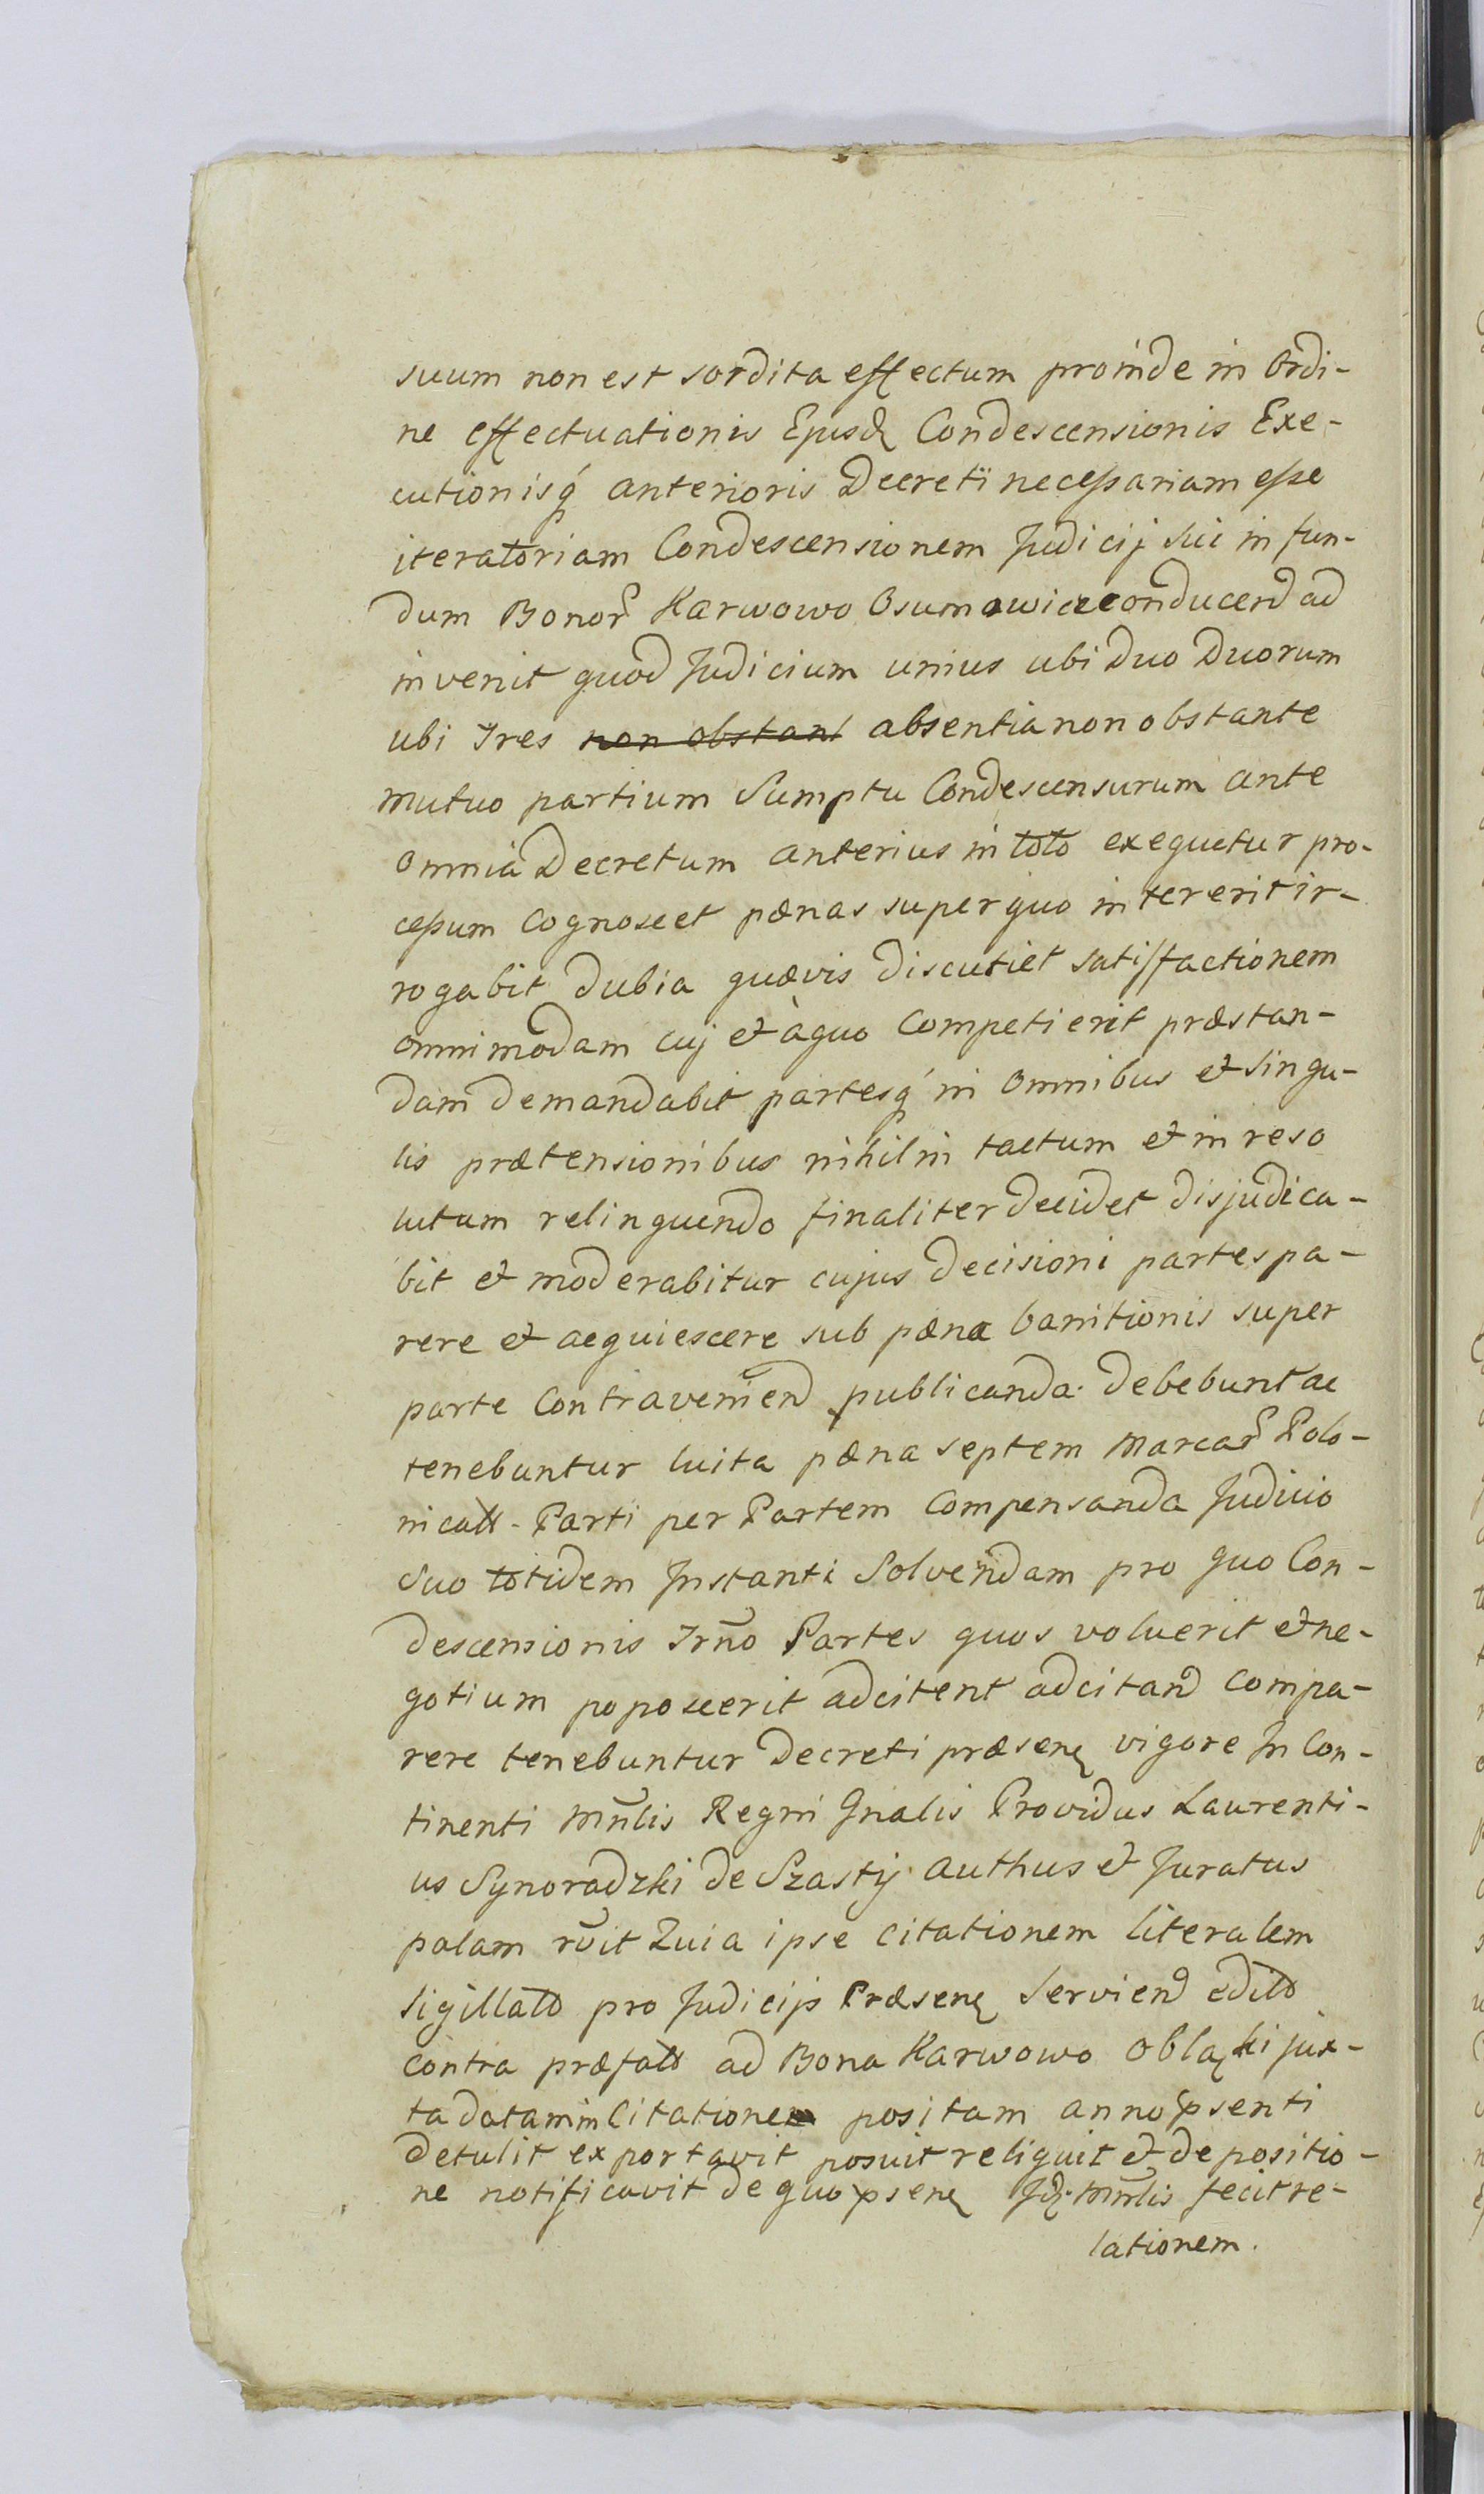 suum non est sordita effectum proinde in Ordi-
ne effectuationis Ejusd Condescensionis Exe-
cutionisq́ anterioris Decreti necessariam esse
iteratoriam Condescensionem Judicij sui in fun-
dum Bonor Karwowo Osumowicze conducend ad
invenit quod Judicium unius ubi Duo Duorum
ubi Tres non obstant absentia non obstante
mutuo partium Sumptu Condescensurum ante
omnia Decretum anterius in toto exequetur pro-
cessum Cognoscet pænas super quo intererit ir-
rogabit dubia quævis discutiet satisfactionem
omnimodam cuj et àquo Competierit præstan-
dam demandabit partesq́ in omnibus et singu-
lis prætensionibus nihil in tactum et in reso
lutum relinquendo finaliter decidet disjudica-
bit et moderabitur cujus decisioni partes pa-
rere et acquiescere sub pæna banitionis super
parte Contraveniend publicanda debebunt ac
tenebuntur luita pæna septem Marcar Polo-
nicall - Parti per Partem Compensanda Judicio
Suo totidem Instanti Solvendam pro quo Con-
descensionis Trño Partes quos voluerit et ne-
gotium poposcerit adcitent adcitand compa-
rere tenebuntur Decreti præsen vigore In Con-
tinenti Mñlis Regni Gnalis Providus Laurenti-
us Synoradzki de Szasty authus et Juratus
palam rũit Quia ipse citationem literalem
sigillatt pro Judicijs Præsen Serviend editt
contra præfatt ad Bona Karwowo Oblaki jux-
ta datam in Citatione positam anno psenti
detulit exportavit posuit reliquit et de positio-
ne notificavit de quo psen Jd Mñlis fecit re-
lationem.